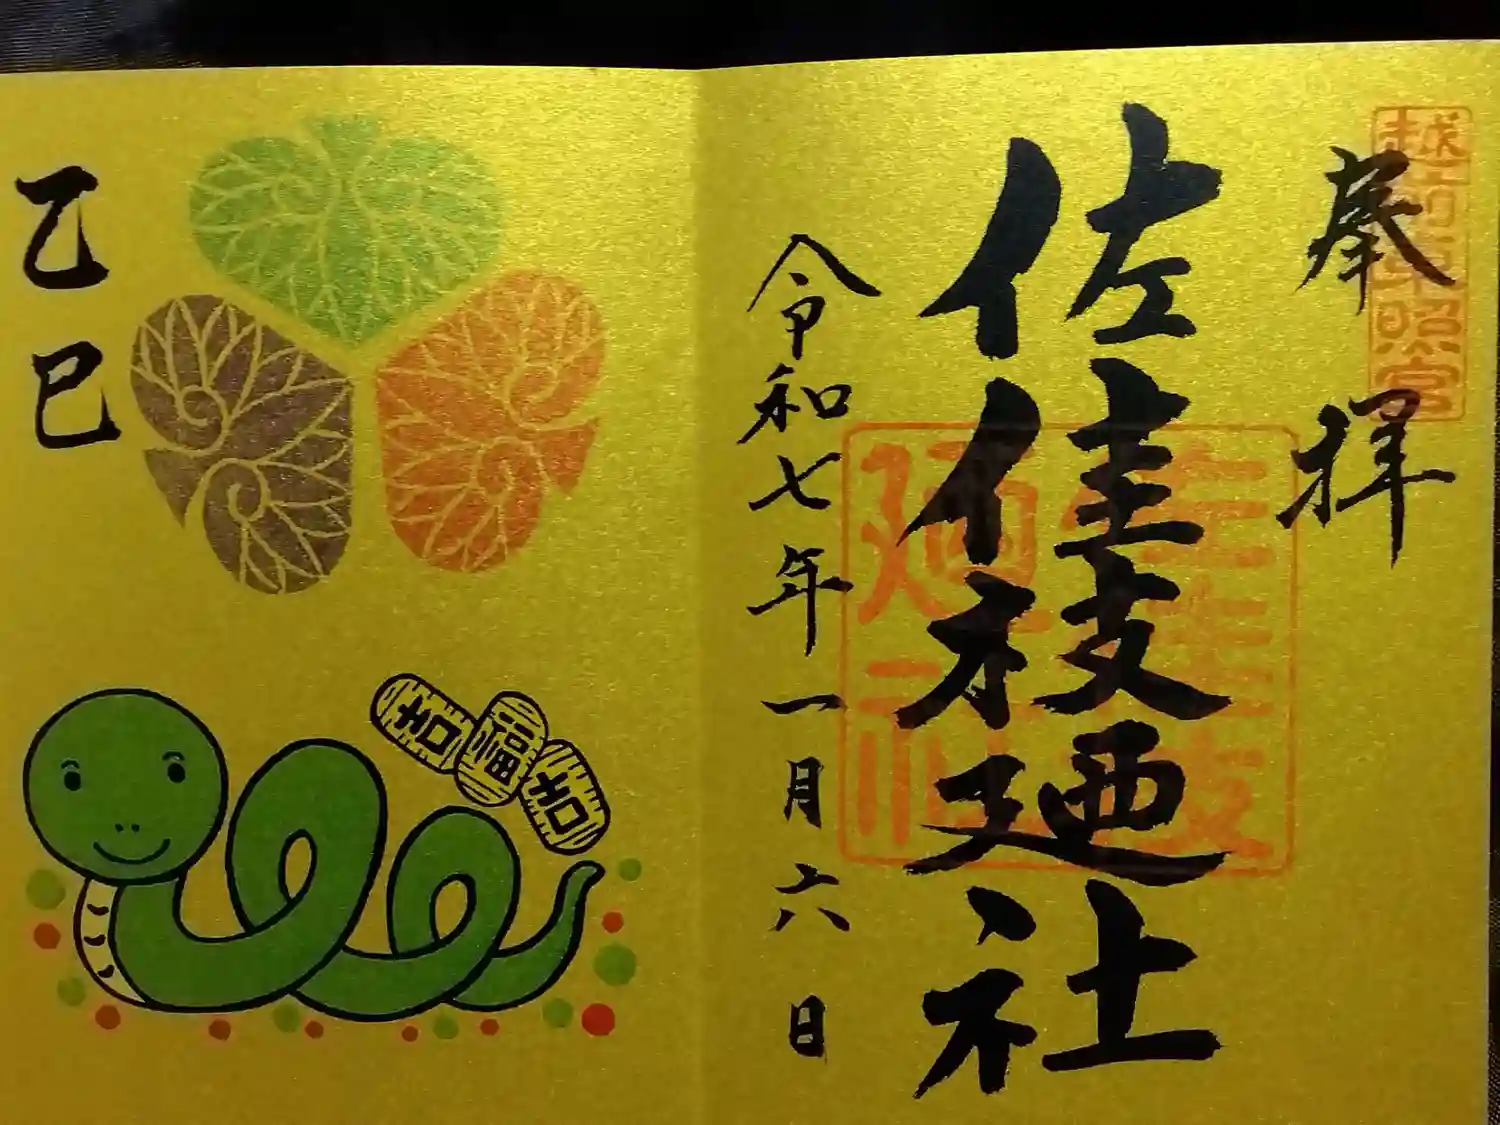 越前東照宮
奉拝
佐佳枝廼社
佐佳枝
廼社
令和七年一月六日
乙巳
吉
福
吉